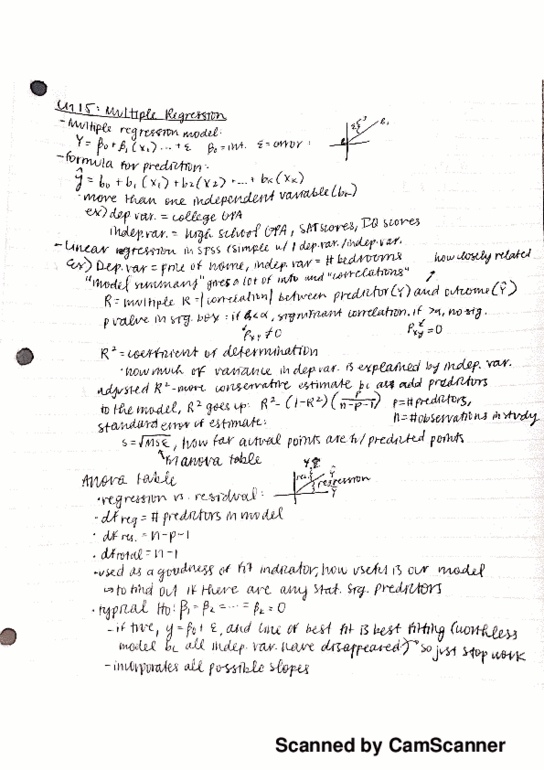 Ch 15: Multiple Regression
- Multiple regression model:
Y = β₀ + β₁(x₁) ... + ε β₀ = int. ε = error :
- formula for prediction:
ŷ = b₀ + b₁(x₁) + b₂(x₂) + ... + bₓ(xₓ)
· more than one independent variable (bₓ)
ex) dep var. = college GPA
indep. var. = high school GPA, SAT scores, IQ scores
- Linear regression in SPSS (simple w/ 1 dep. var./indep. var.
(ex) Dep. var = price of home, indep. var = # bedrooms how closely related
"model summary" gives a lot of info and "correlations"
R = multiple R = |correlation| between predictor (Y) and outcome (Ŷ)
p value in sig. box : if <α, significant correlation, if >α, no sig.
Pxy ≠ 0 Pxy = 0
R² = coefficient of determination
· how much of variance in dep var. is explained by indep. var.
adjusted R² - more conservative estimate bc as add predictors
to the model, R² goes up: R² - (1-R²)(p/n-p-1) p = # predictors,
n = # observations in study
standard error of estimate:
s = √MSE, how far actual points are b/ predicted points
in anova table
Anova table
· regression vs. residual: regression
· df reg = # predictors in model
· df res. = n-p-1
· df total = n-1
· used as a goodness of fit indicator, how useful is our model
↳ to find out if there are any stat. sig. predictors
· typical H₀: β₁ = β₂ = ... = β₂ = 0
- if true, y = β₀ + ε, and line of best fit is best fitting (worthless
model bc all indep. var. have disappeared) so just stop work
- incorporates all possible slopes
Scanned by CamScanner